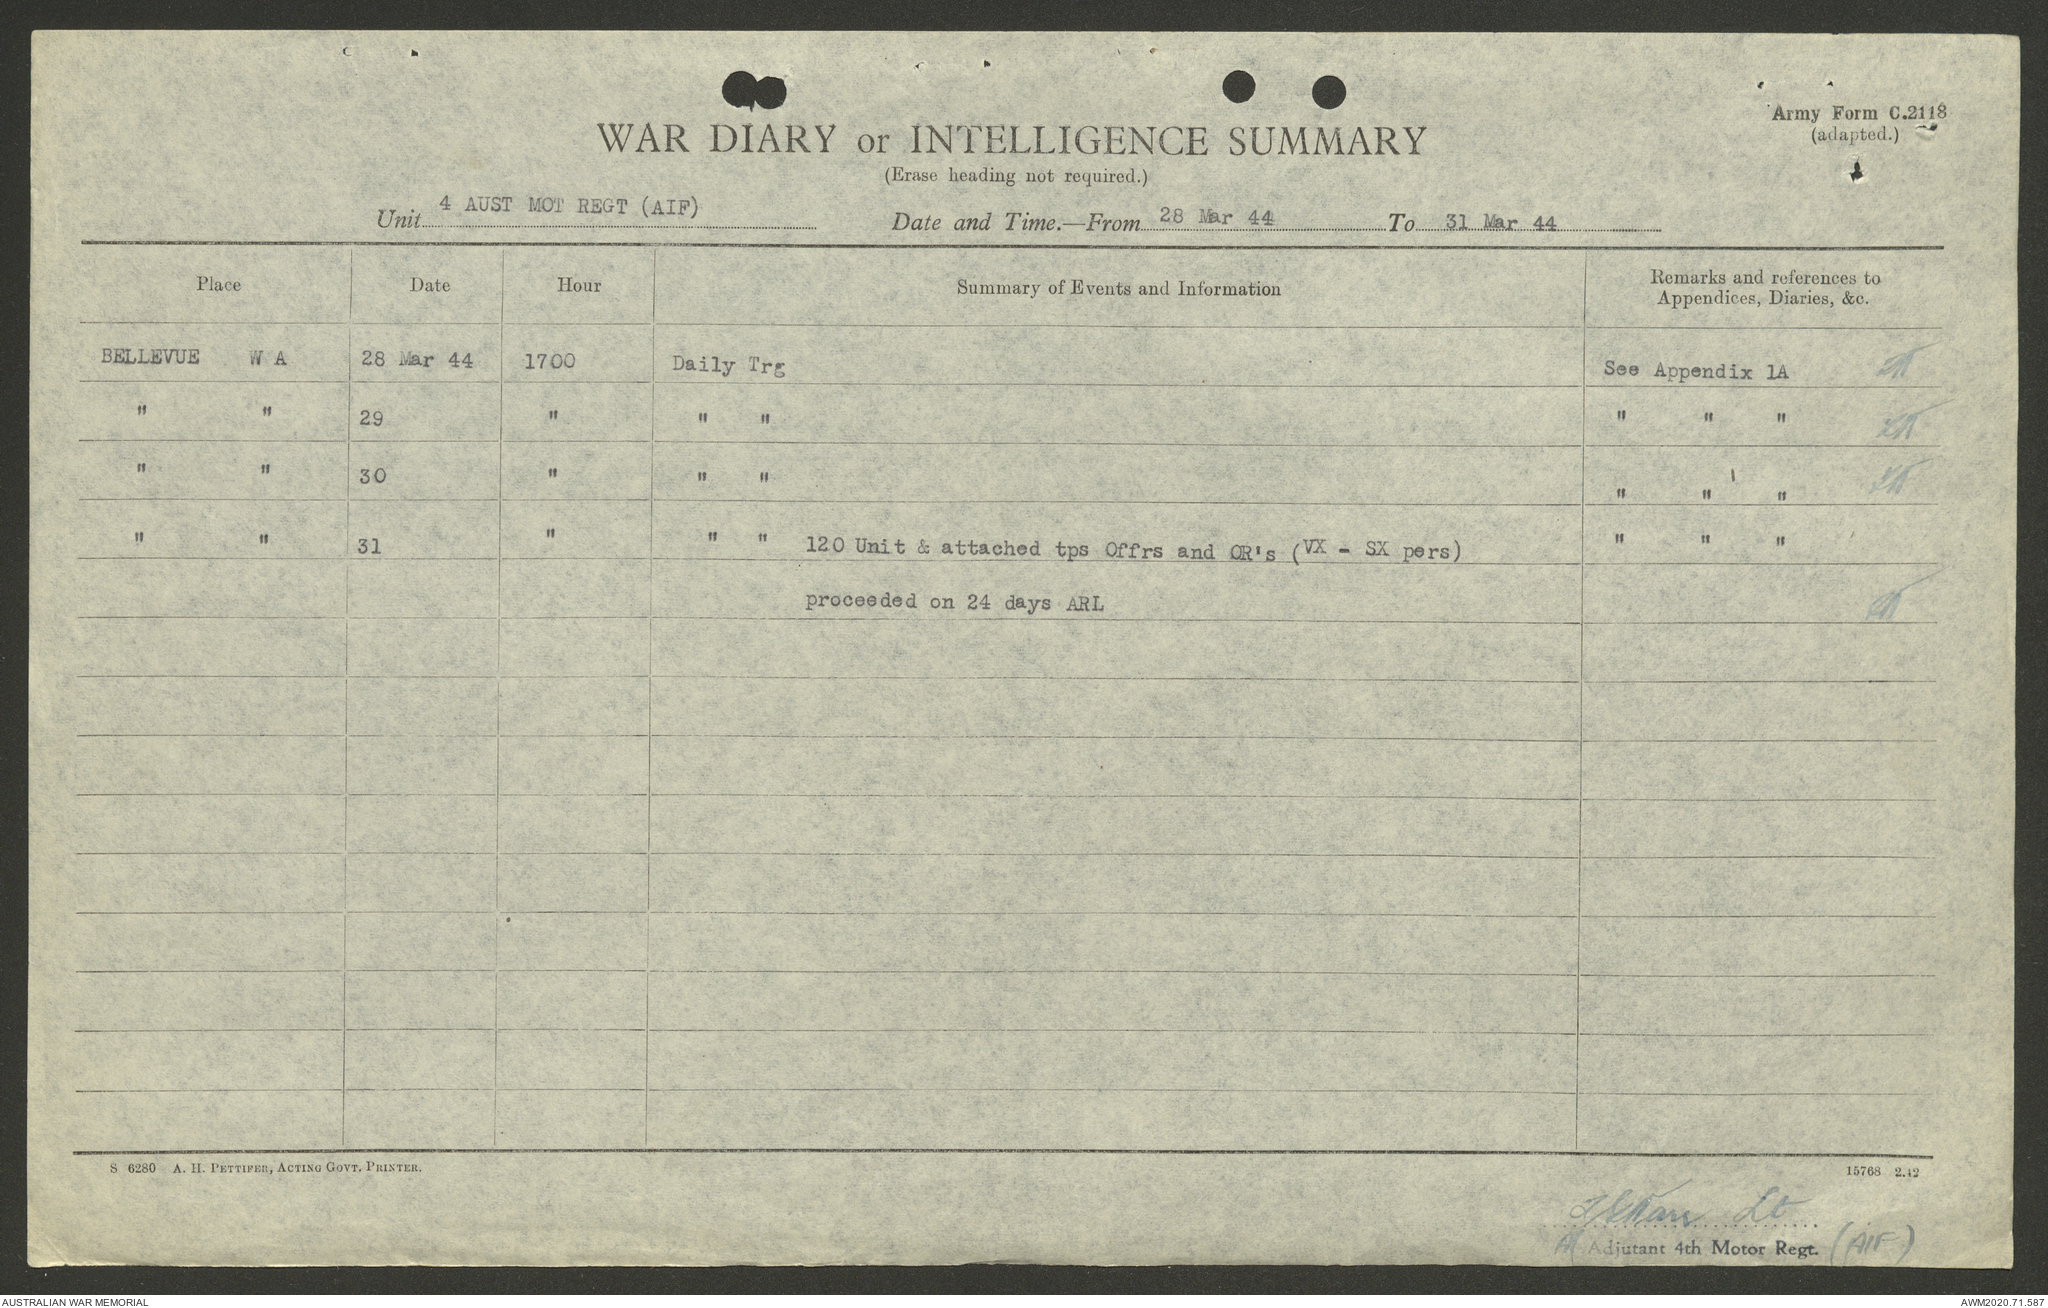 Army Form C.2118
(adapted.)
WAR DIARY or INTELLIGENCE SUMMARY
(Erase heading not required.)
Unit 4 AUST MOT REGT (AIF) Date and Time.—From 28 Mar 44 To 31 Mar 44
Place Date Hour Summary of Events and Information Remarks and references to Appendices, Diaries, &c.
BELLEVUE W A 28 Mar 44 1700 Daily Trg See Appendix 1A
" " 29 " " " " " "
" " 30 " " " " " "
" " 31 " " " 120 Unit & attached tps Offrs and OR's (VX - SX pers) " " "
proceeded on 24 days ARL
S 6280 A. H. PETTIFER, ACTING GOVT. PRINTER. 15768 2.42
Lt
A/ Adjutant 4th Motor Regt. (AIF)
AUSTRALIAN WAR MEMORIAL AWM2020.71.587